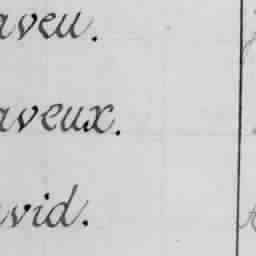 aveu.
aveux.
avid.